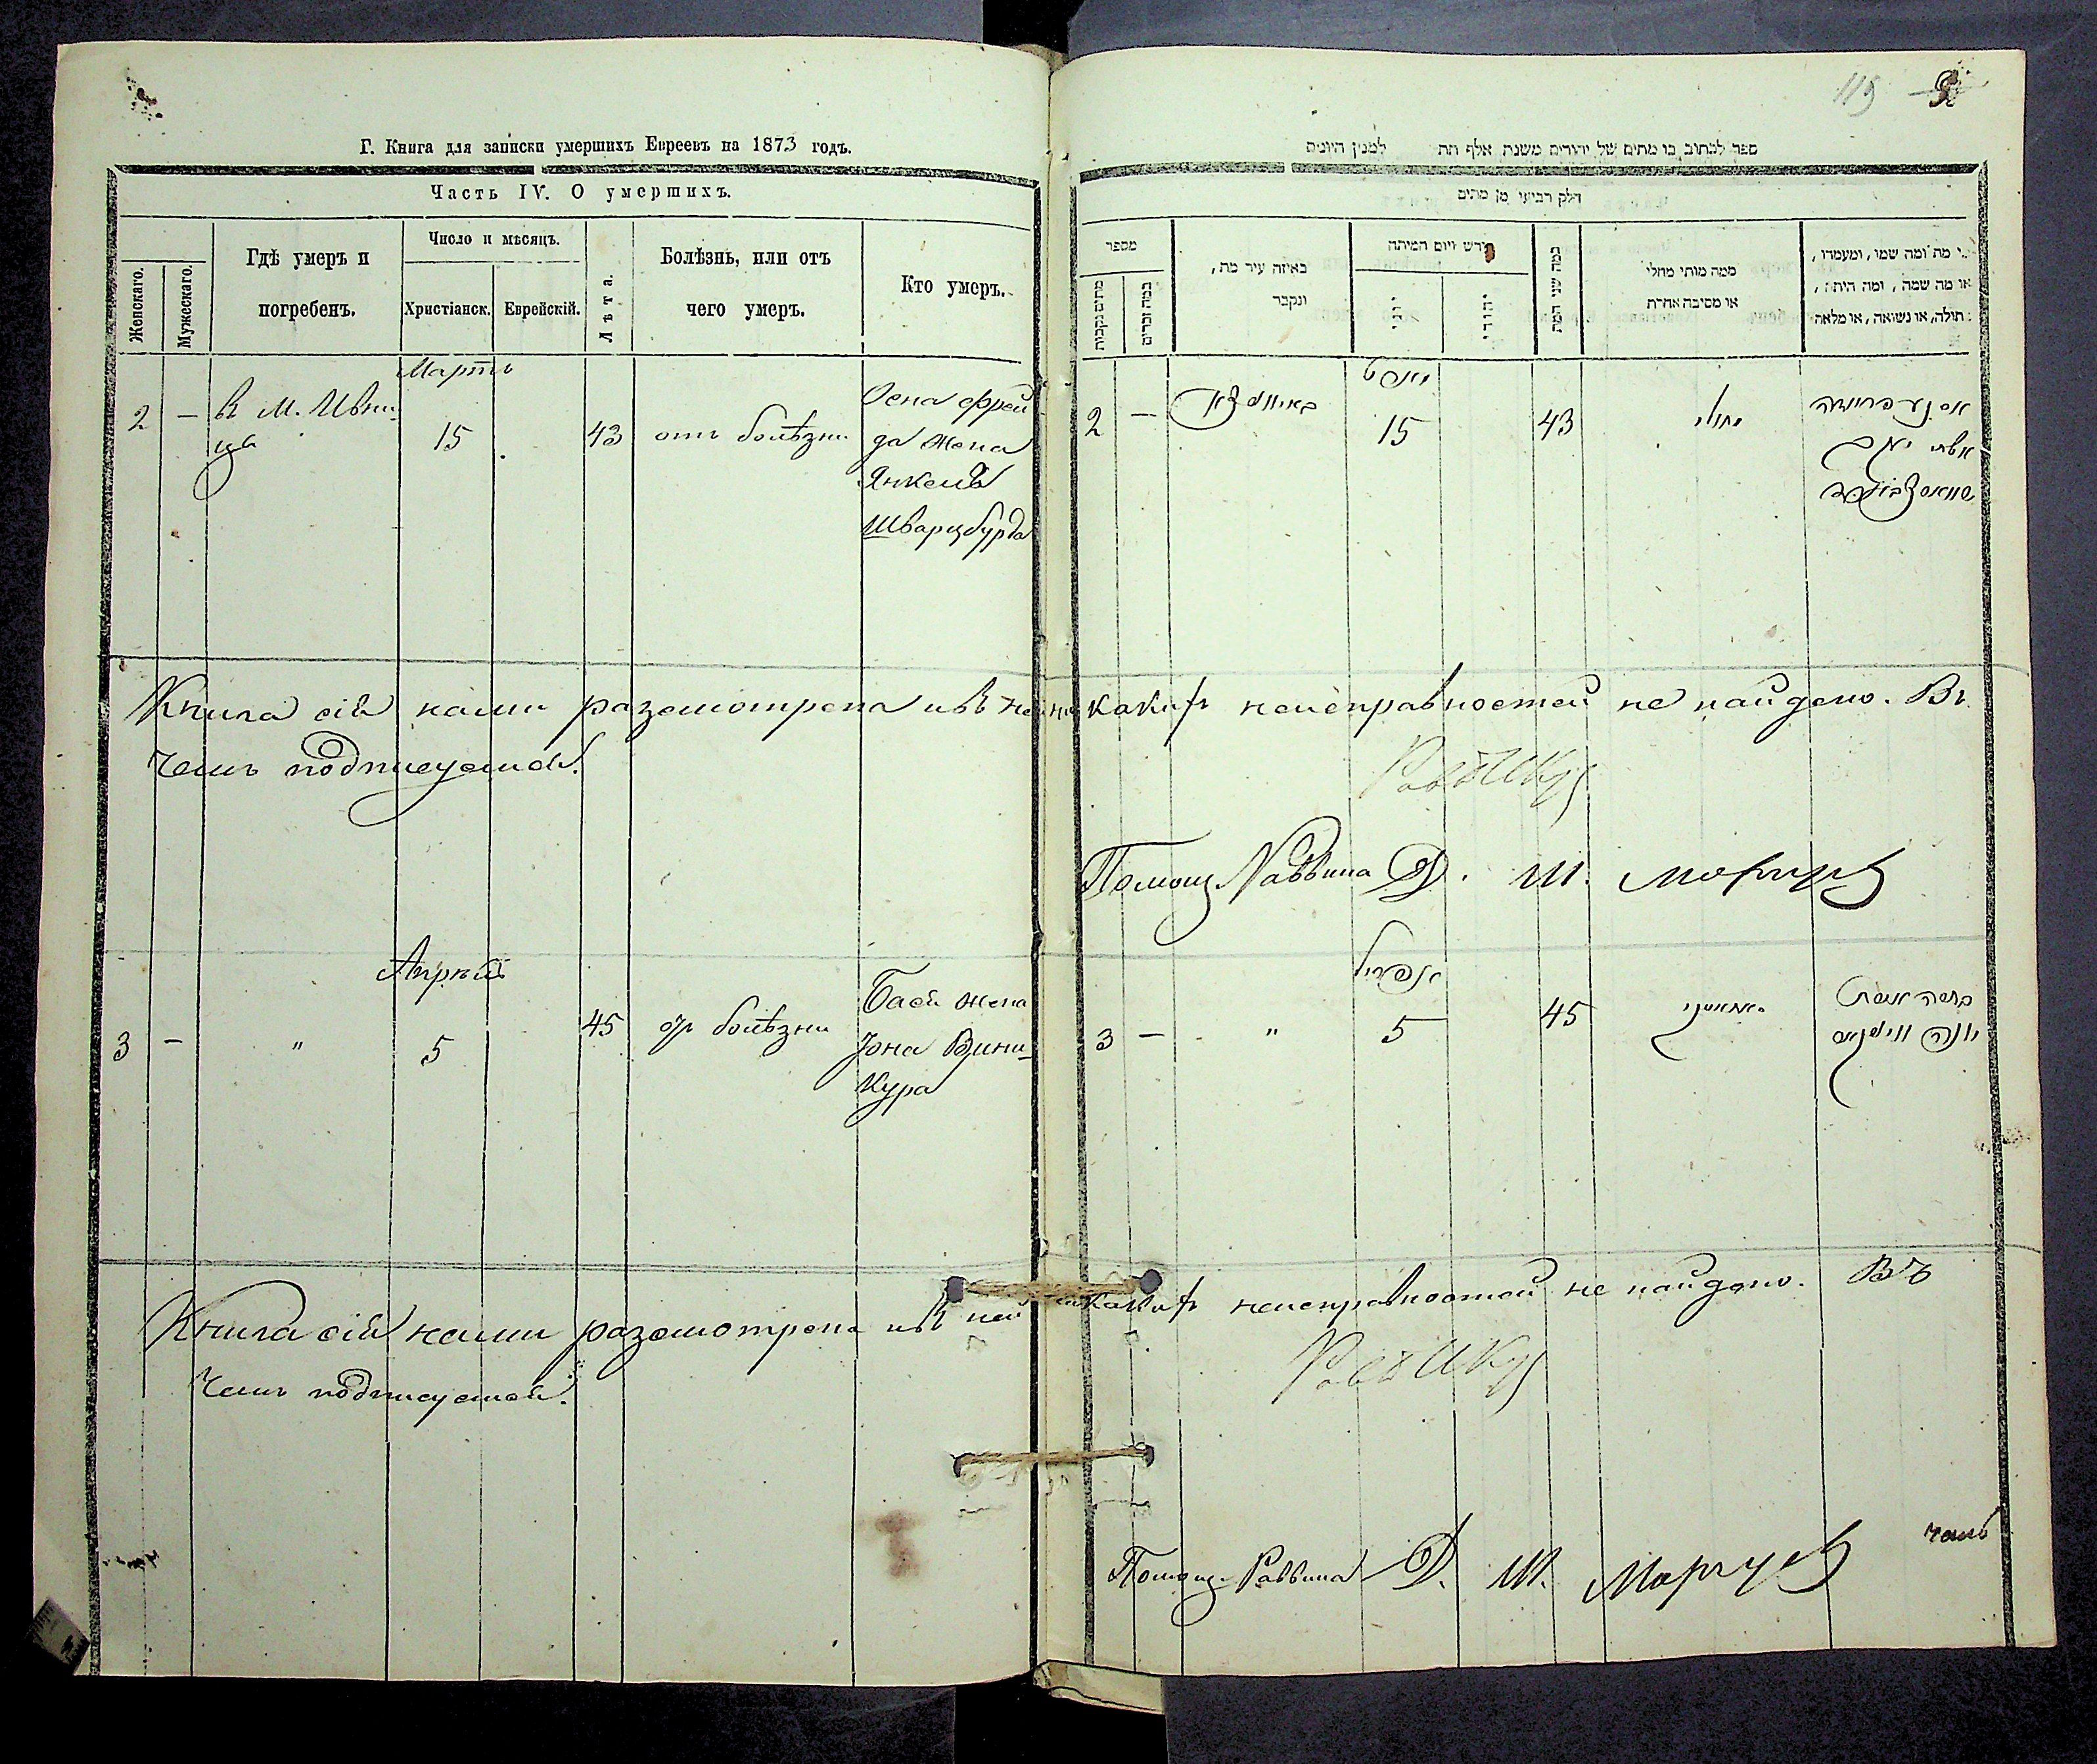 Г. Книга для записки умершихъ Евреевъ на 1873 годъ.
Часть IV. О умершихъ.
Женскаго.
Мужескаго.
Гдѣ умеръ и
погребенъ.
Число и мѣсяцъ.
Христіанск.
Еврейскій.
Лѣта.
Болѣзнь, или отъ
чего умеръ.
Кто умеръ.
Мартъ
2 — в М. Ивни-
ца
15
43
отъ болѣзни
Осна Фрей
да жена
Янкеля
Шварцбурда
Книга сія нами разсмотрена и въ ней ни
чемъ подписуемся.
Апрѣль
3 — " 5 45 отъ болѣзни
Бася жена
Іона Вини-
кура
Книга сія нами разсмотрена и въ ней
чемъ подписуемся.
119
ספר לכתוב בו מתים של יהודים משנת אלף תת למנין היונים
חלק רביעי מן מתים
מספר
מתים נקבות
כמה זכרים
באיזה עיר מת,
ונקבר
חדש ויום המיתה
יוני
יהודי
כמה שני המת
ממה מותי מחלי
או מסיבה אחרת
מי מת ומה שמו, ומעמדו,
או מה שמה, ומה היתה,
בתולה, או נשואה, או מלאה
2 —
15
43
אסנע פריידא
אשת יעקב
какихъ неисправностей не найдено. Въ
Помощ. Раввина Д. Ш.
אפריל
3 — " 5 45
באסיה אשת
יונה וויניקור
какихъ неисправностей не найдено. Въ
Помощ. Раввина Д. Ш.
чемъ